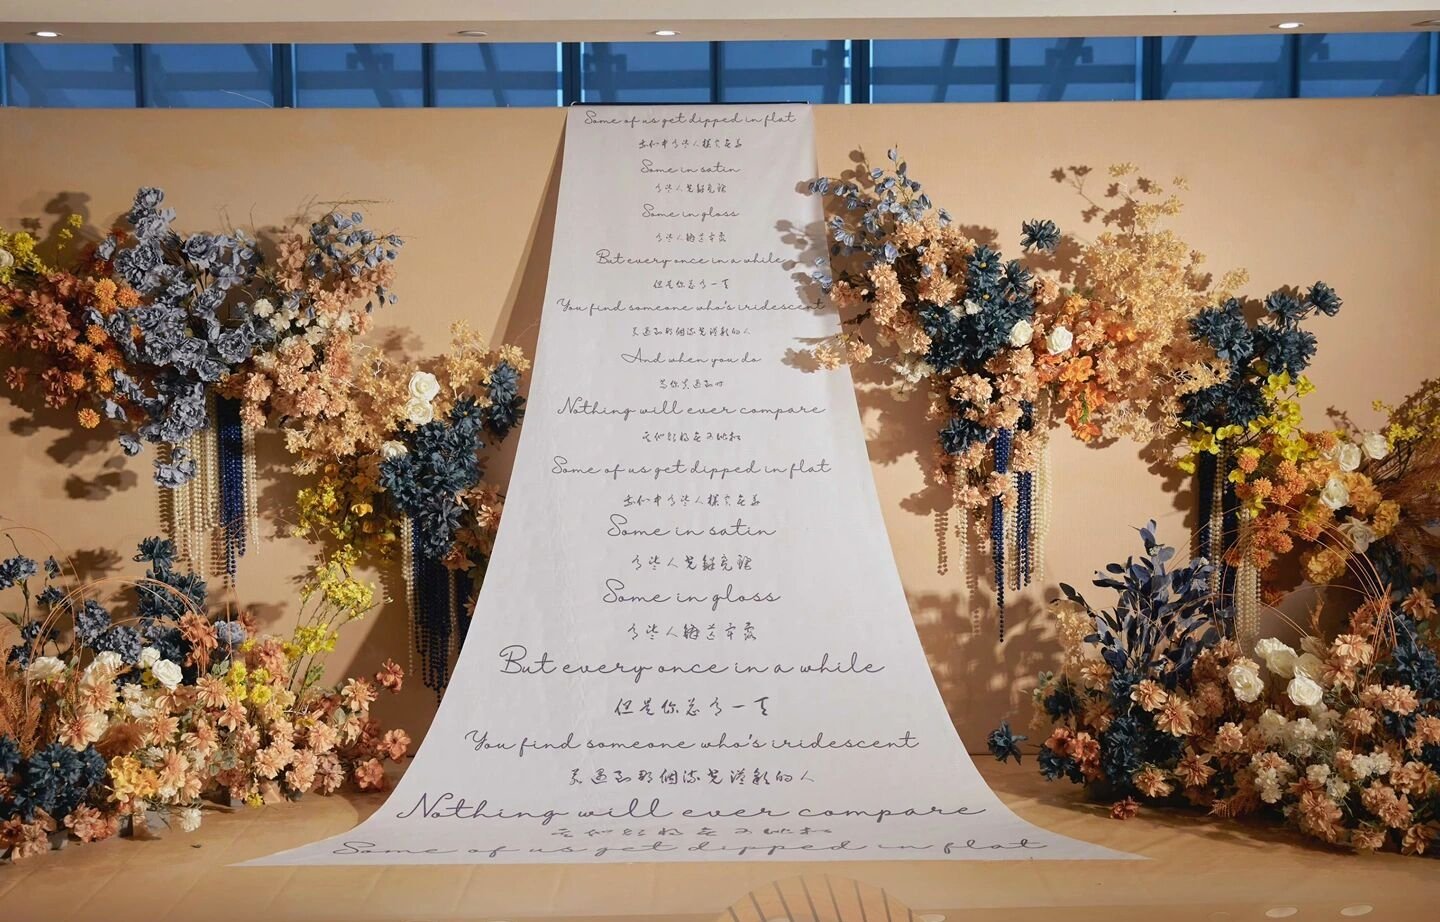 Some of us get dipped in flat
我们中有些人模实在若
Some in satin
有些人光鲜亮丽
Some in gloss
有些人
But every once in a while
但是你总有一天
You find someone who's iridescent
会遇到那个流光溢彩的人
And when you do
当你会遇到时
Nothing will ever compare
Some of us get dipped in flat
Some in satin
有些人光鲜亮丽
Some in gloss
有些人
But every once in a while
但是你总有一天
You find someone who's iridescent
会遇到那个流光溢彩的人
Nothing will ever compare
Some of us get dipped in flat